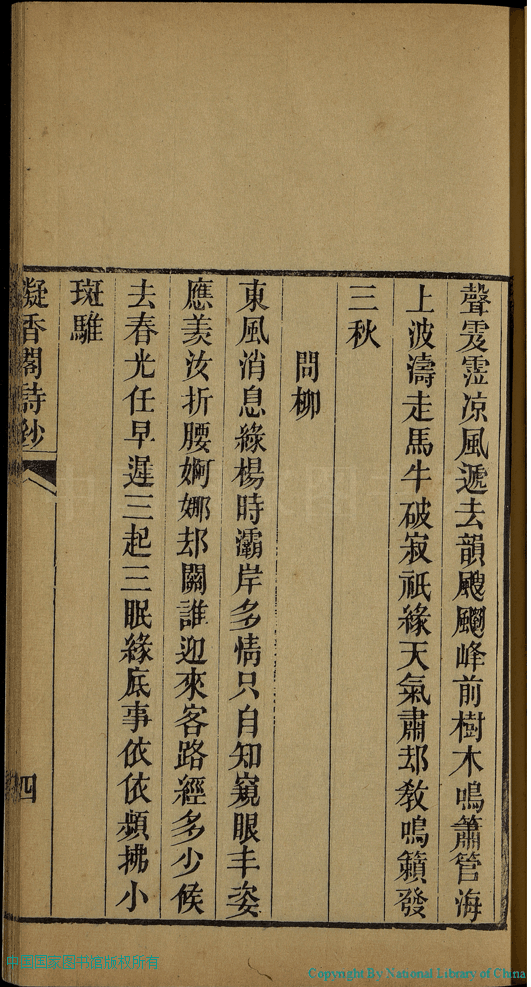 聲雯霊凉風遞去韻颼飀峰前樹木鳴簫管海
上波濤走馬牛破寂祇緣天氣肅却敎鳴籟發
三秋
問柳
東風消息綠楊時灞岸多情只自知窺眼丰姿
應羡汝折腰婀娜却關誰迎來客路經多少候
去春光任早遲三起三眠緣底事依依頻拂小
斑騅
凝香閣詩鈔
四
中国国家图书馆版权所有
Copyright By National Library of China